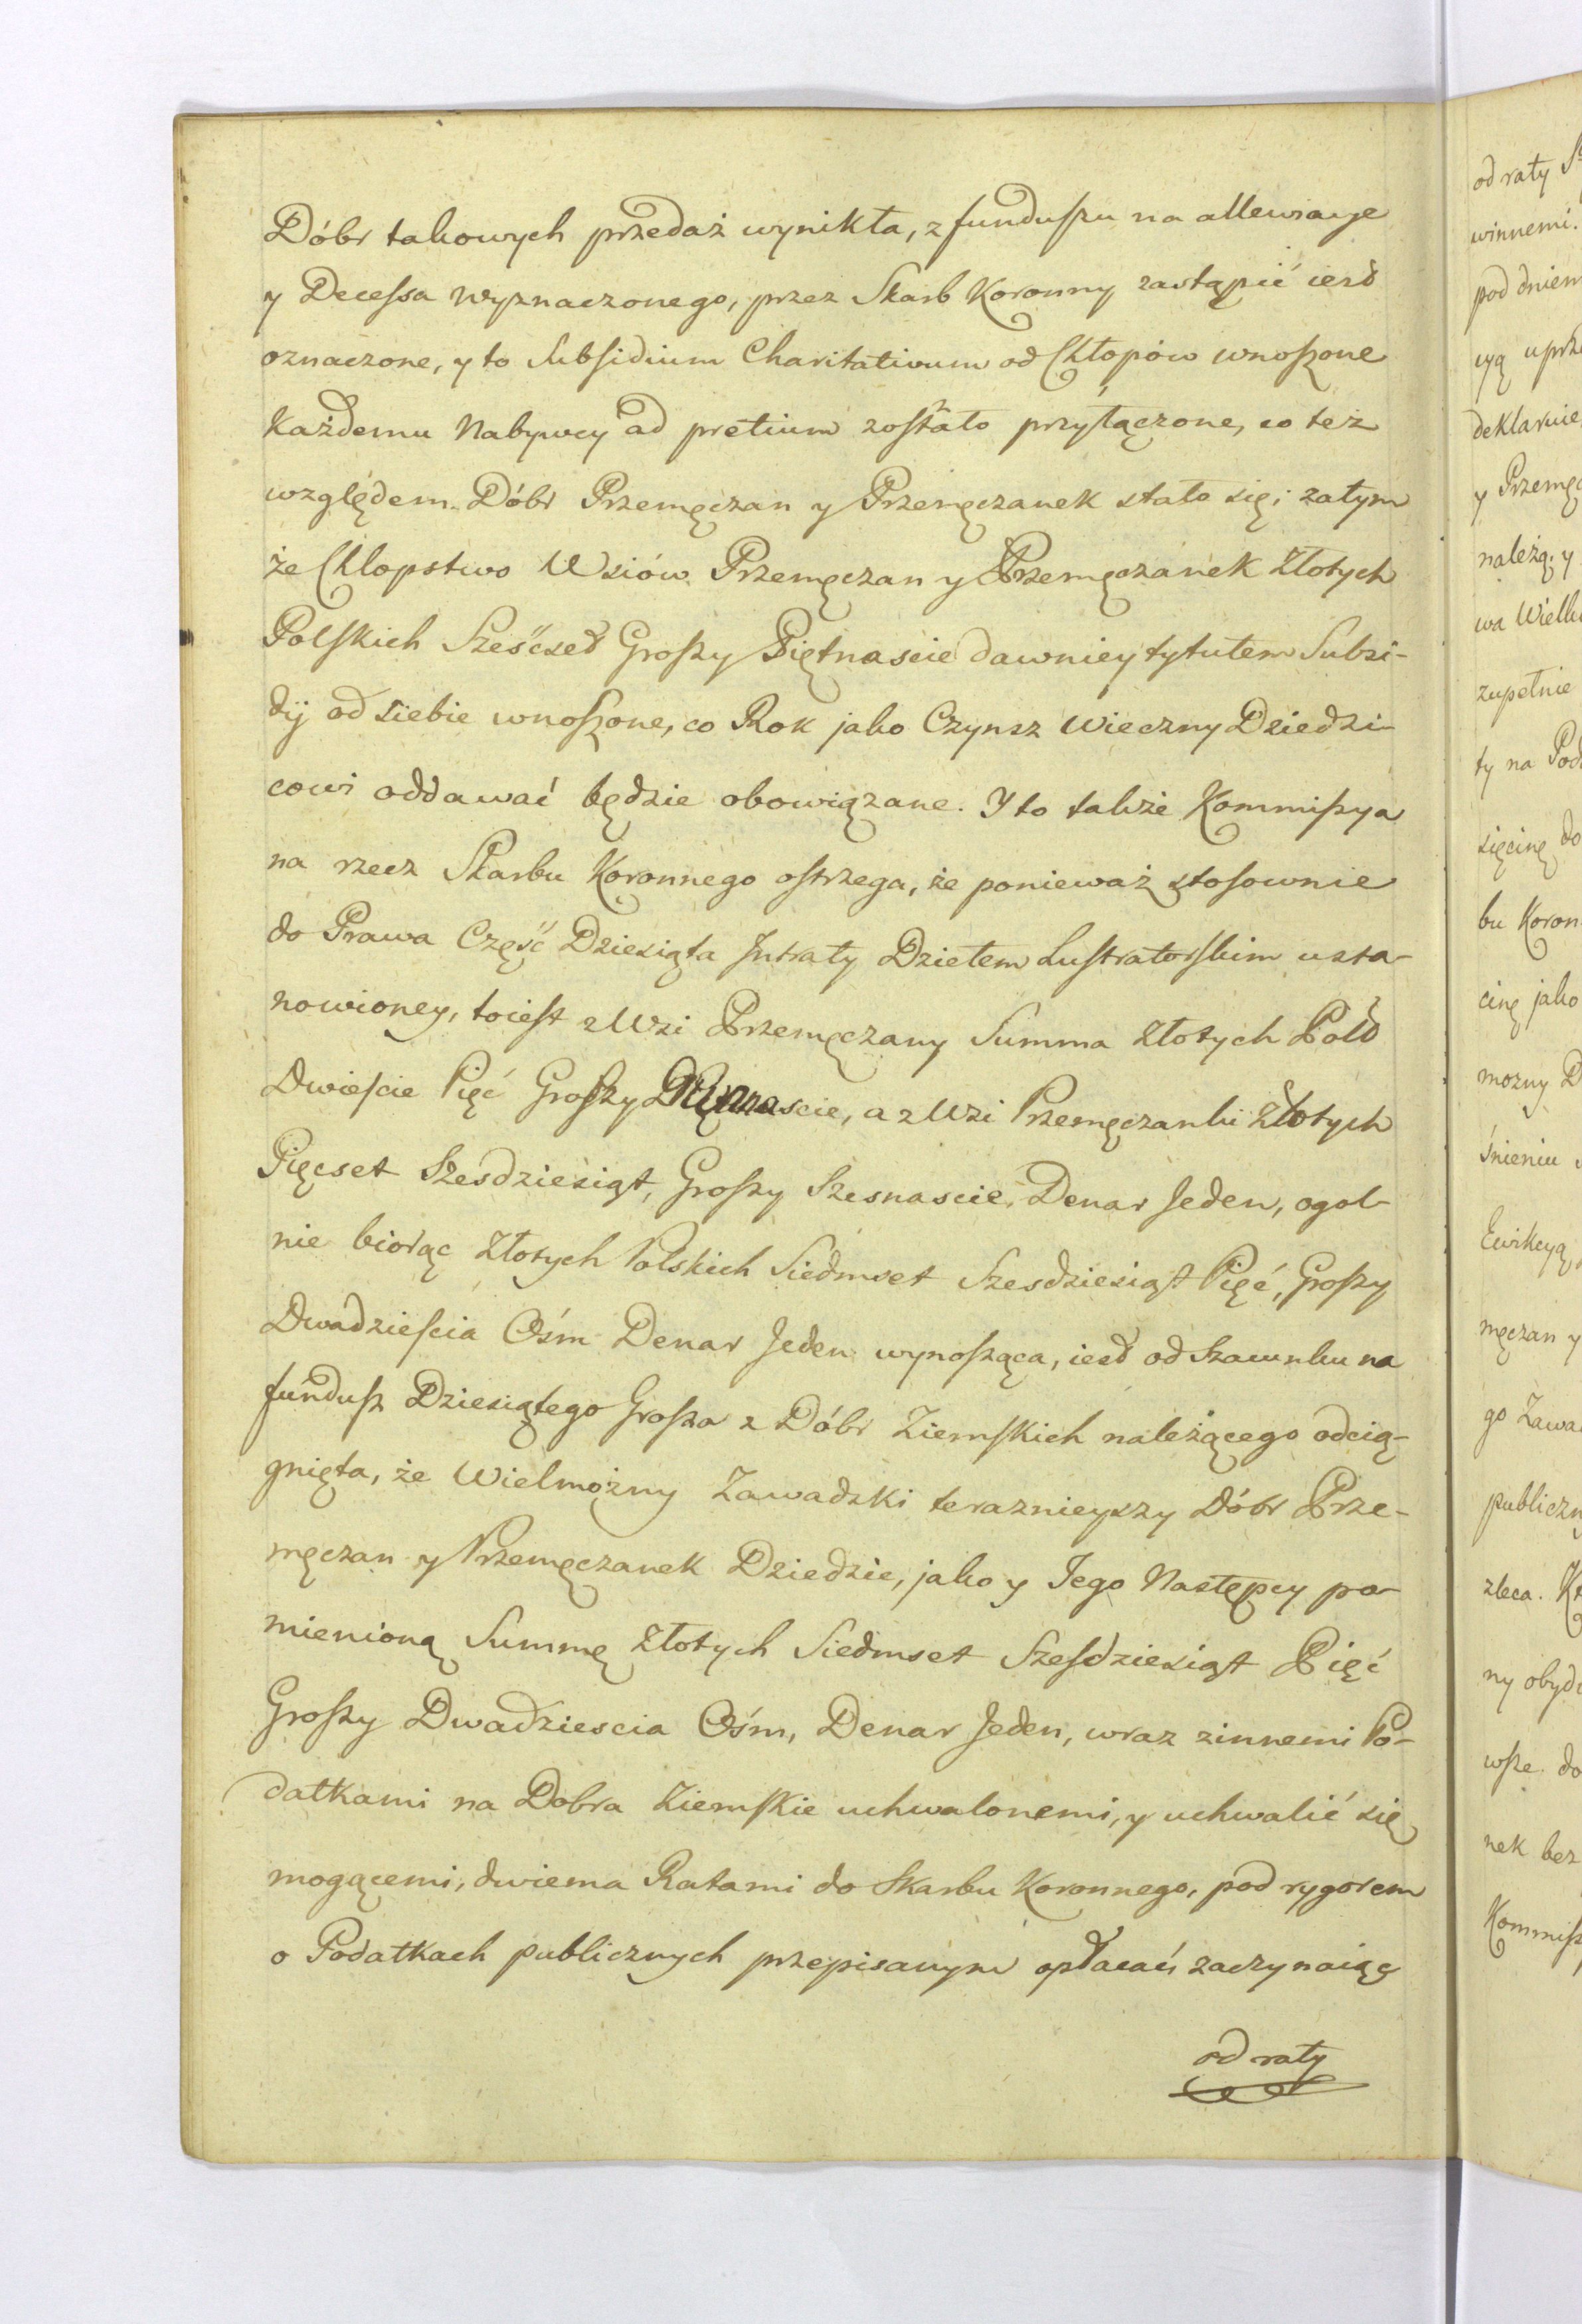 Dóbr takowych przedaż wynikła, z funduszu na allewiacye
y Decessa wyznaczonego, przez Skarb Koronny zastąpić iest
oznaczone, y to Subsidium Charitativum od Chłopów wnoszone
każdemu Nabywcy ad pretium zostało przyłączone, co też
względem Dóbr Przemęczan y Przemęczanek stało się; zatym
że Chłopstwo Wsiów Przemęczan y Przemęczanek Złotych
Polskich Sześćset Groszy Piętnascie dawniey tytułem Subsi-
dij od siebie wnoszone, co Rok jako Czynsz Wieczny Dziedzi-
cowi oddawać będzie obowiązane. Y to także Kommissya
na rzecz Skarbu Koronnego ostrzega, że ponieważ stosownie
do Prawa Część Dziesiąta Intraty Dziełem Lustratorskim usta-
nowioney, toiest z Wsi Przemęczany Summa Złotych Pols
Dwieście Pięć Groszy, a z Wsi Przemęczanki Złotych
Pięcset Szesdziesiąt, Groszy Szesnascie, Denar Jeden, ogol-
nie biorąc Złotych Polskich Siedmset Szesdziesiąt Pięć, Groszy
Dwadzieścia Ośm Denar Jeden wynosząca, iest od Szacunku na
fundusz Dziesiątego Grosza z Dóbr Ziemskich należącego odcią-
gnięta, że Wielmożny Zawadzki teraznieyszy Dóbr Prze-
męczan y Przemęczanek Dziedzic, jako y Jego Następcy po-
mienioną Summę Złotych Siedmset Sześdziesiąt Pięć
Groszy Dwadziescia Ośm, Denar Jeden, wraz zinnemi Po-
datkami na Dobra Ziemskie uchwalonemi, y uchwalić się
mogącemi, dwiema Ratami do Skarbu Koronnego, pod rygorem
o Podatkach publicznych przepisanym opłacać zaczynaiąc
od raty
od raty
winnemi.
pod dniem
cyą
deklaruie
y Przemęc
należą; y
wa Wielk
zupełnie
ty na Pod
sięcinę do
bu Koron
cinę jako
mozny D
śnieniu
Ewikcyą
męczan y
go Zawa
publiczn
zleca.
ny obyd
wsze. do
nek bez
Kommiss